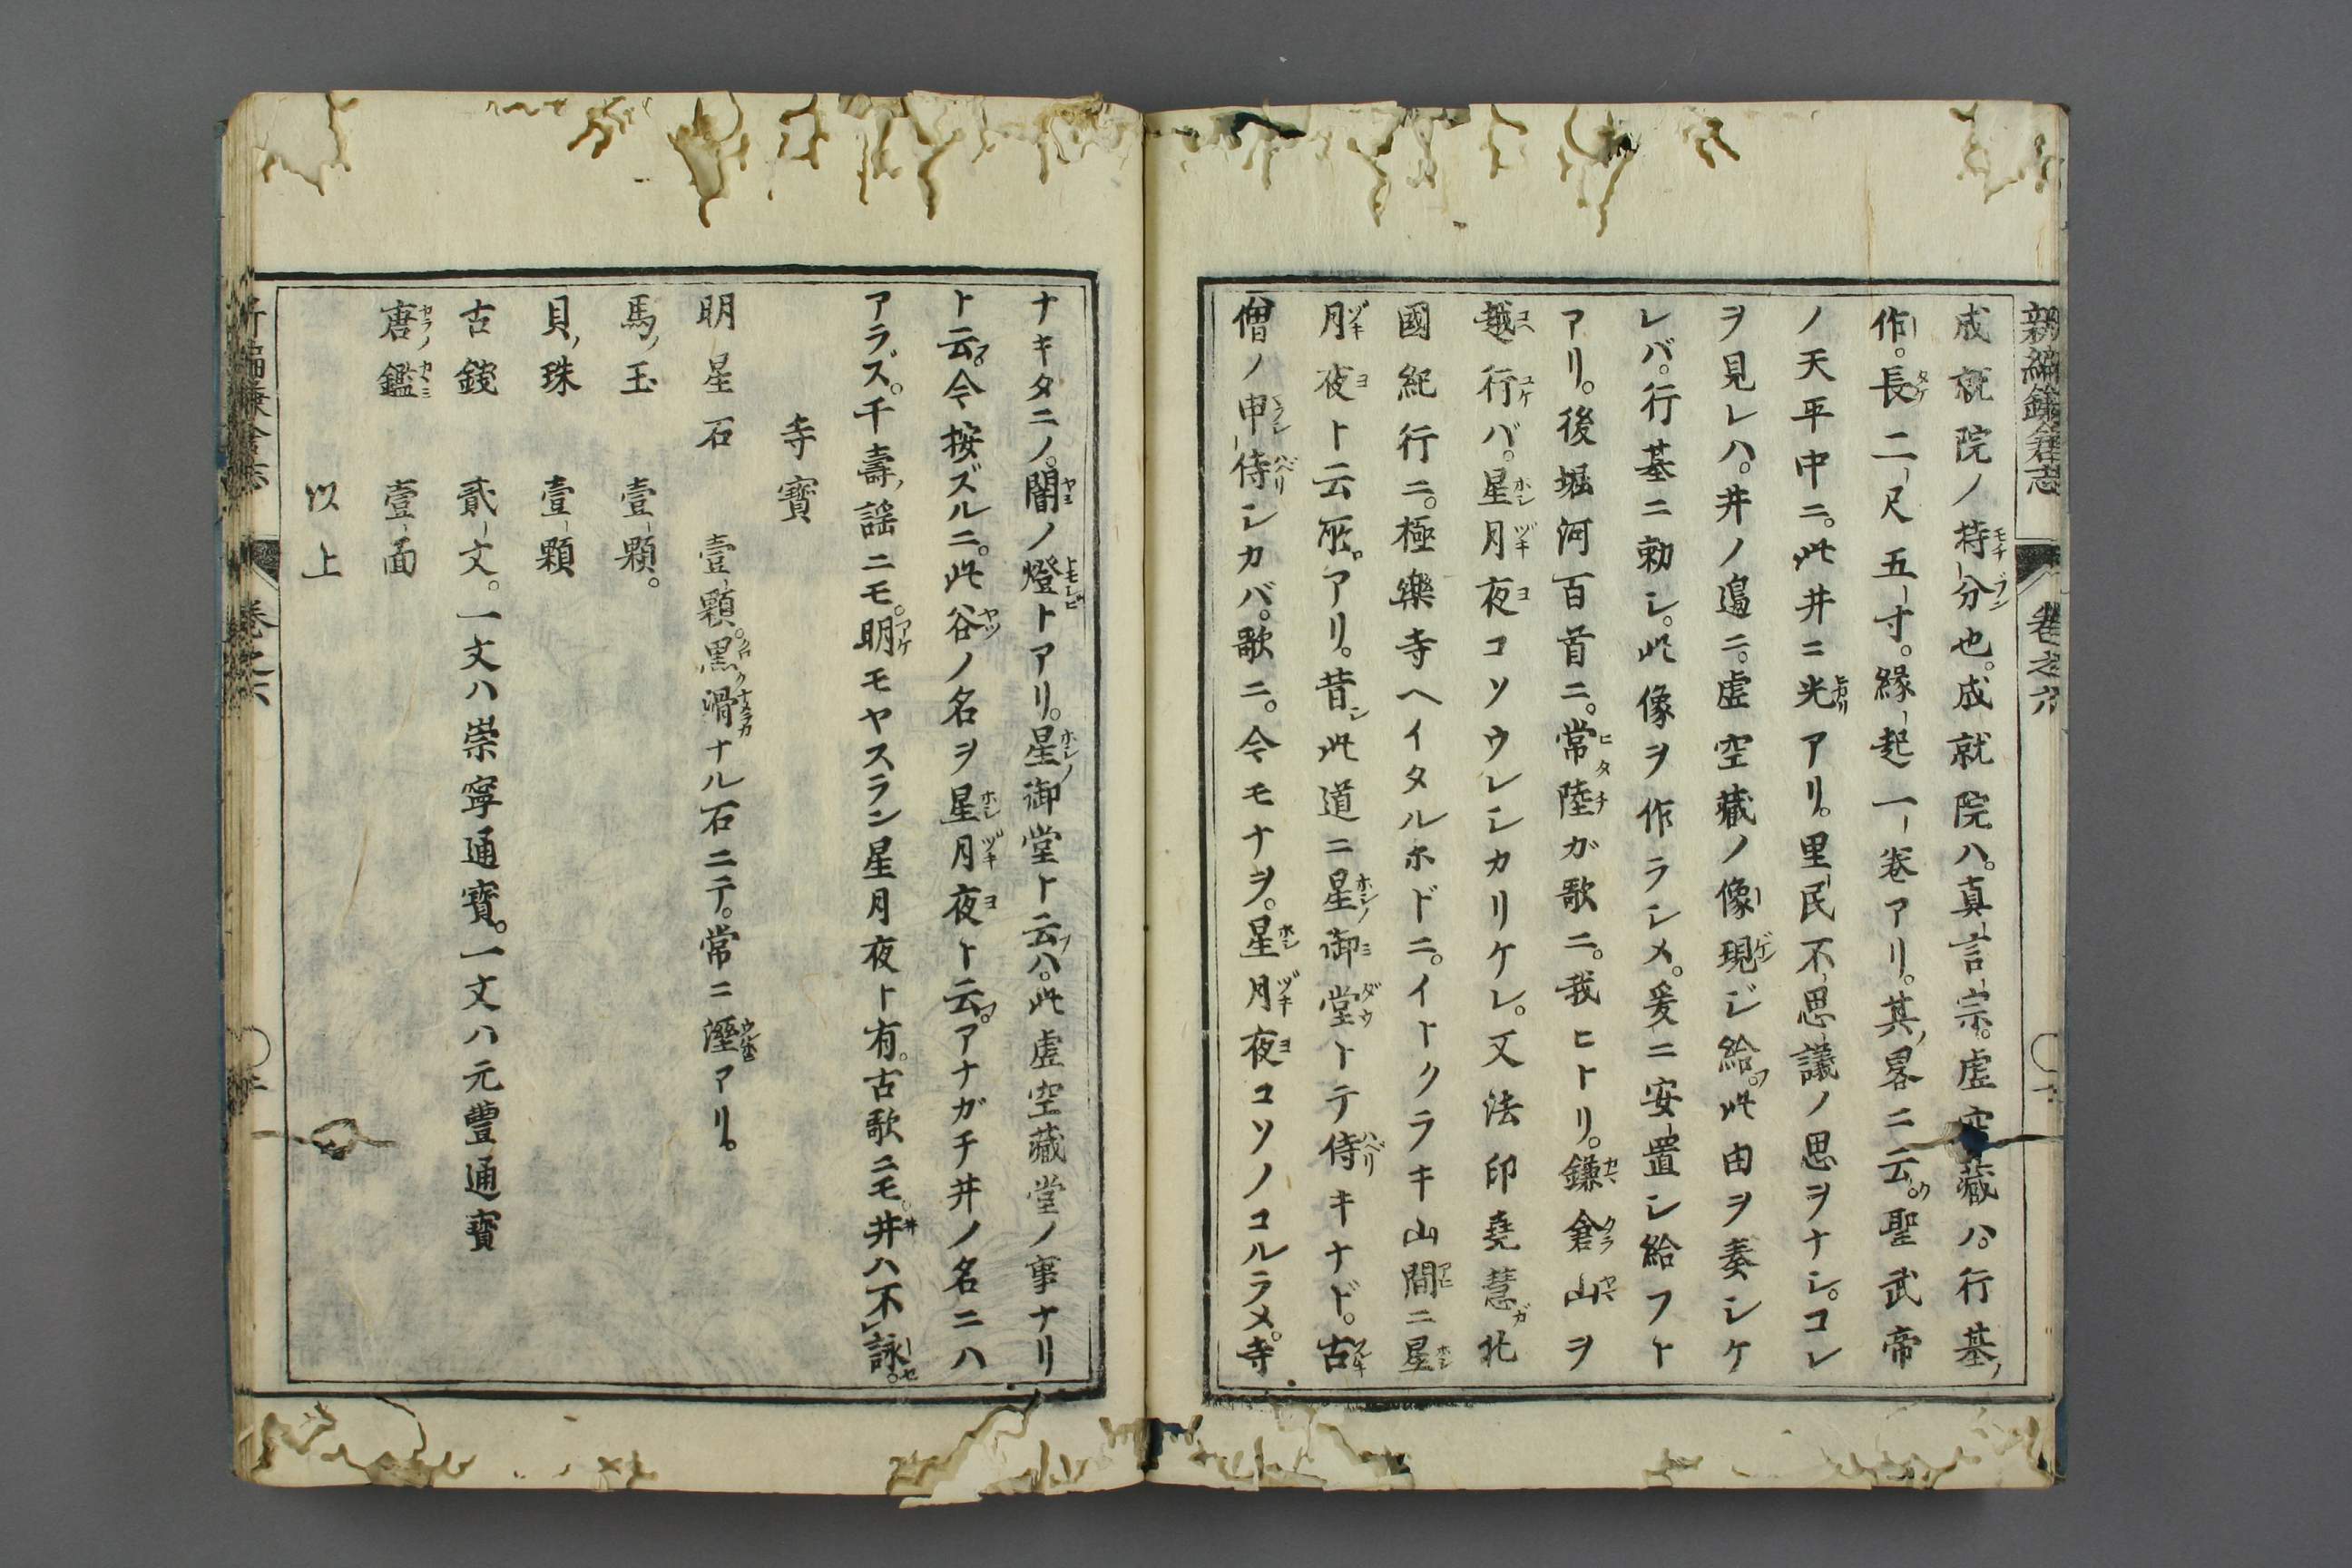 新編鎌倉志 卷之六
成就院ノ持分也。成就院ハ。真言宗。虚空藏ハ。行基ノ
作。長二尺五寸。縁起一卷アリ。其ノ畧ニ云ク。聖武帝
ノ天平中ニ。此井ニ光アリ。里民不思議ノ思ヲナシ。コレ
ヲ見レハ。井ノ邉ニ。虚空藏ノ像現ジ給フ。此由ヲ奏シケ
レバ。行基ニ勅シ。此像ヲ作ラシメ。爰ニ安置シ給フト
アリ。後堀河百首ニ。常陸ガ歌ニ。我ヒトリ。鎌倉山ヲ
越行バ。星月夜コソウレシカリケレ。又法印堯慧ガ北
國紀行ニ。極樂寺ヘイタルホドニ。イトクラキ山間ニ星
月夜ト云所アリ。昔シ此道ニ星御堂トテ侍キナド。古
僧ノ申侍シカバ。歌ニ。今モナヲ。星月夜コソノコルラメ。寺
ナキタニノ。闇ノ燈トアリ。星御堂ト云フハ。此虚空藏堂ノ事ナリ
ト云フ。今按ズルニ。此谷ノ名ヲ星月夜ト云フ。アナガチ井ノ名ニハ
アラズ。千壽ノ謡ニモ。明モヤスラン星月夜ト有。古歌ニモ。井ハ不レ詠セ。
寺寶
明星石 壹顆。黒ク滑ナル石ニテ。常ニ溼アリ。
馬ノ玉 壹顆。
貝ノ珠 壹顆
古錢 貳文。一文ハ崇寧通寶。一文ハ元豐通寶
唐ノ鑑 壹面
以上
卷之六